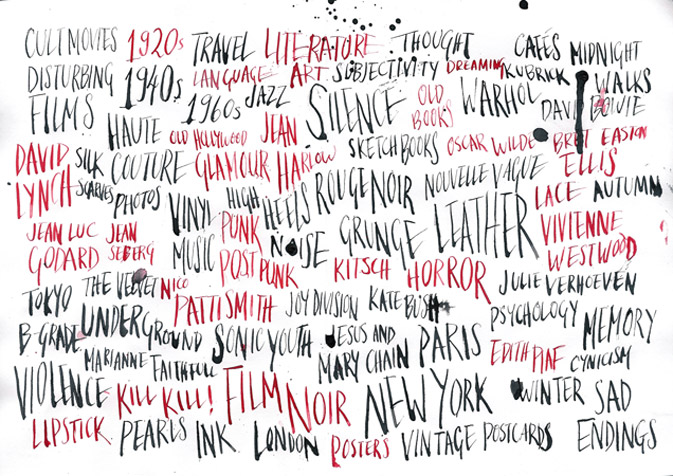 CULT MOVIES 1920s TRAVEL LITERATURE THOUGHT CAFÉS MIDNIGHT
DISTURBING 1940s LANGUAGE ART SUBJECTIVITY DREAMING KUBRICK WALKS
FILMS 1960s JAZZ SILENCE OLD BOOKS WARHOL DAVID BOWIE
HAUTE OLD HOLLYWOOD JEAN SKETCHBOOKS OSCAR WILDE BRET EASTON
DAVID SILK COUTURE GLAMOUR HARLOW ROUGE NOIR NOUVELLE VAGUE ELLIS
LYNCH SCARVES PHOTOS VINYL HIGH HEELS LEATHER LACE AUTUMN
JEAN LUC JEAN PUNK NOISE GRUNGE VIVIENNE
GODARD SEBERG MUSIC POST PUNK KITSCH HORROR WESTWOOD
TOKYO THE VELVET NICO PATTI SMITH JOY DIVISION KATE BUSH JULIE VERHOEVEN
B-GRADE UNDERGROUND SONIC YOUTH JESUS AND PARIS PSYCHOLOGY MEMORY
MARIANNE FAITHFULL MARY CHAIN EDITH PIAF CYNICISM
VIOLENCE KILL KILL! FILM NOIR NEW YORK WINTER SAD
LIPSTICK PEARLS INK LONDON POSTERS VINTAGE POSTCARDS ENDINGS